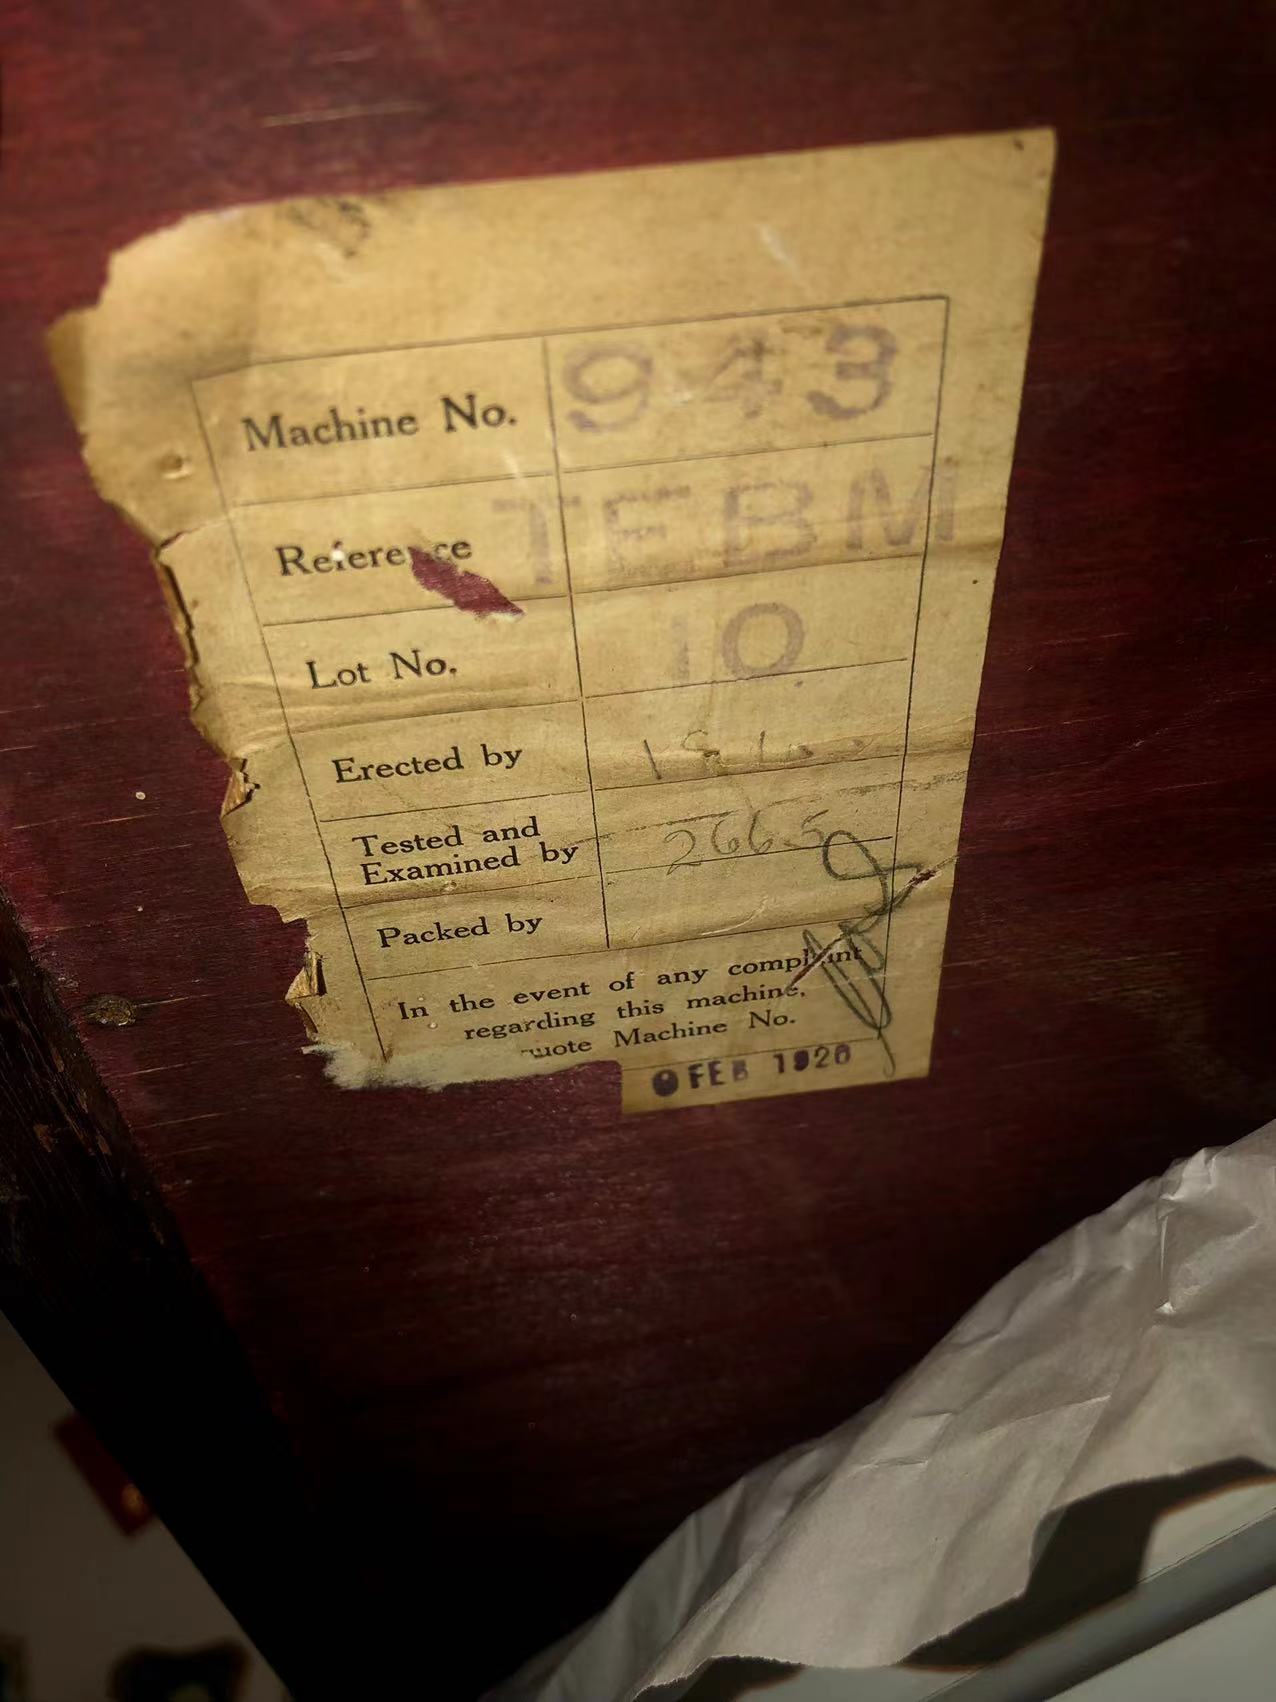 Machine No. 943
Reference TEBM
Lot No. 10
Erected by
Tested and
Examined by 2665
Packed by
In the event of any complaint
regarding this machine,
uote Machine No.
FEB 1926